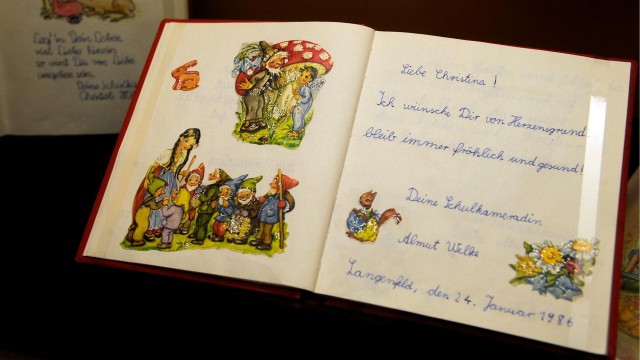 Leg' in Dein Leben
viel Liebe hinein
so wird Dir von Liebe
umgeben sein.
Deine
Liebe Christina!
Ich wünsche Dir von Herzensgrund
bleib immer fröhlich und gesund!
Deine Schulkameradin
Almut Welke
Langenfeld, den 24. Januar 1986